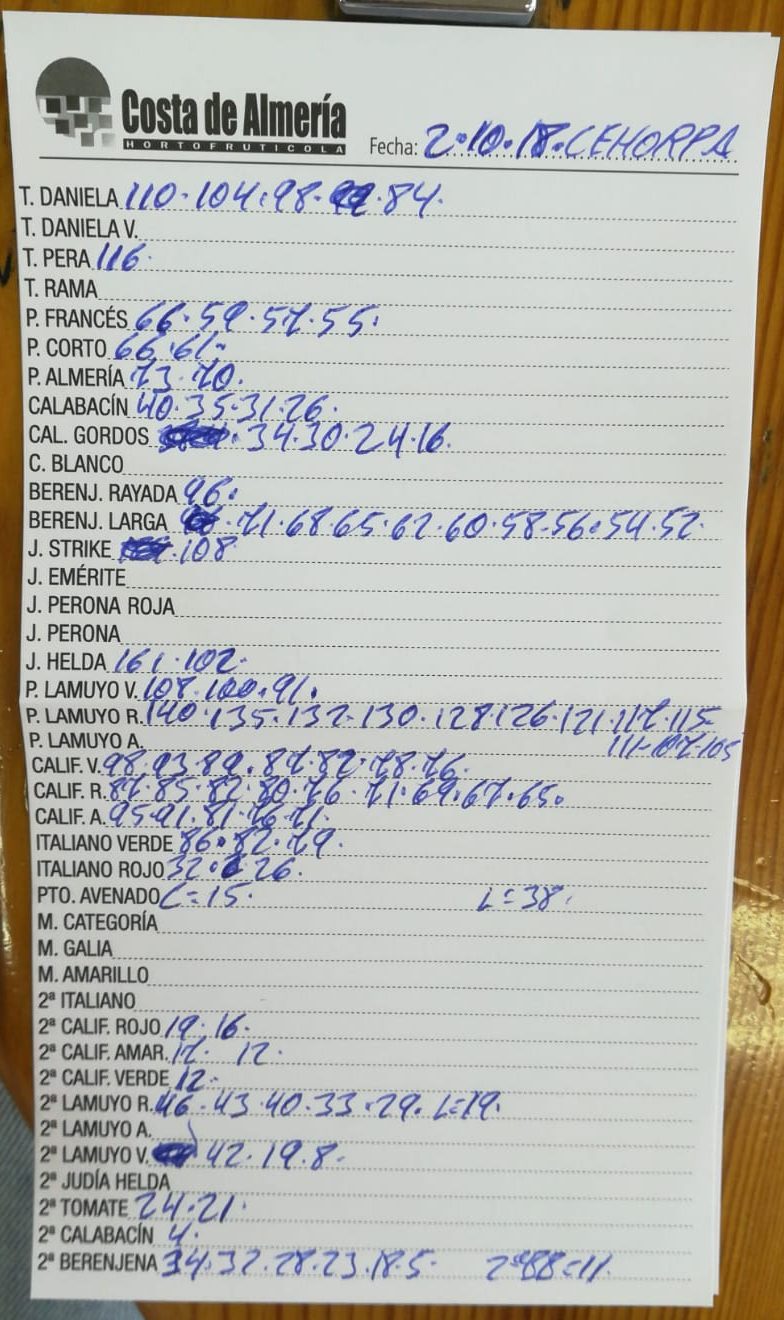 Costa de Almería
HORTOFRUTICOLA
Fecha: 2.10.18. CEHORPA
T. DANIELA 110.104.98. .84.
T. DANIELA V.
T. PERA 116.
T. RAMA
P. FRANCÉS 66.59.57.55.
P. CORTO 66.61.
P. ALMERÍA 73.70.
CALABACÍN 40.35.31.26.
CAL. GORDOS .34.30.24.16.
C. BLANCO
BERENJ. RAYADA 96.
BERENJ. LARGA .71.68.65.62.60.58.56.54.52.
J. STRIKE .108
J. EMÉRITE
J. PERONA ROJA
J. PERONA
J. HELDA 161.102.
P. LAMUYO V. 108.100.91.
P. LAMUYO R. 140.135.132.130.128.126.121.117.115
111.107.105
P. LAMUYO A.
CALIF. V. 98.93.89.87.82.78.76.
CALIF. R. 87.85.82.80.76.71.69.67.65.
CALIF. A. 95.91.81.76.71.
ITALIANO VERDE 86.82.79.
ITALIANO ROJO 32. 26.
PTO. AVENADO C=15. L=38.
M. CATEGORÍA
M. GALIA
M. AMARILLO
2ª ITALIANO
2ª CALIF. ROJO 19.16.
2ª CALIF. AMAR. 17. 12.
2ª CALIF. VERDE 12.
2ª LAMUYO R. 46.43.40.33.29. L=19.
2ª LAMUYO A.
2ª LAMUYO V. 42.19.8.
2ª JUDÍA HELDA
2ª TOMATE 24.21.
2ª CALABACÍN 4.
2ª BERENJENA 34.32.28.23.18.5. =11.